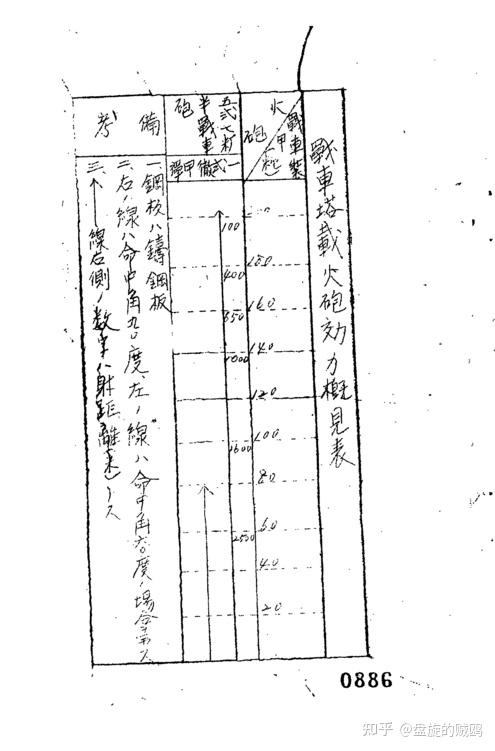 戰車塔載火砲効力概見表
戰車装甲(粍)
火砲
180
160
140
120
100
80
60
40
20
七糎半戰車砲
一式徹甲彈
100
400
850
1000
1600
2500
備考
一鋼板ハ鑄鋼板
二右ノ線ハ命中角九〇度左ノ線ハ命中角六〇度ノ場合ヲ示ス
三↑線右側ノ数字ハ射距離(米)トス
0886
知乎 @盘旋的贼鸥